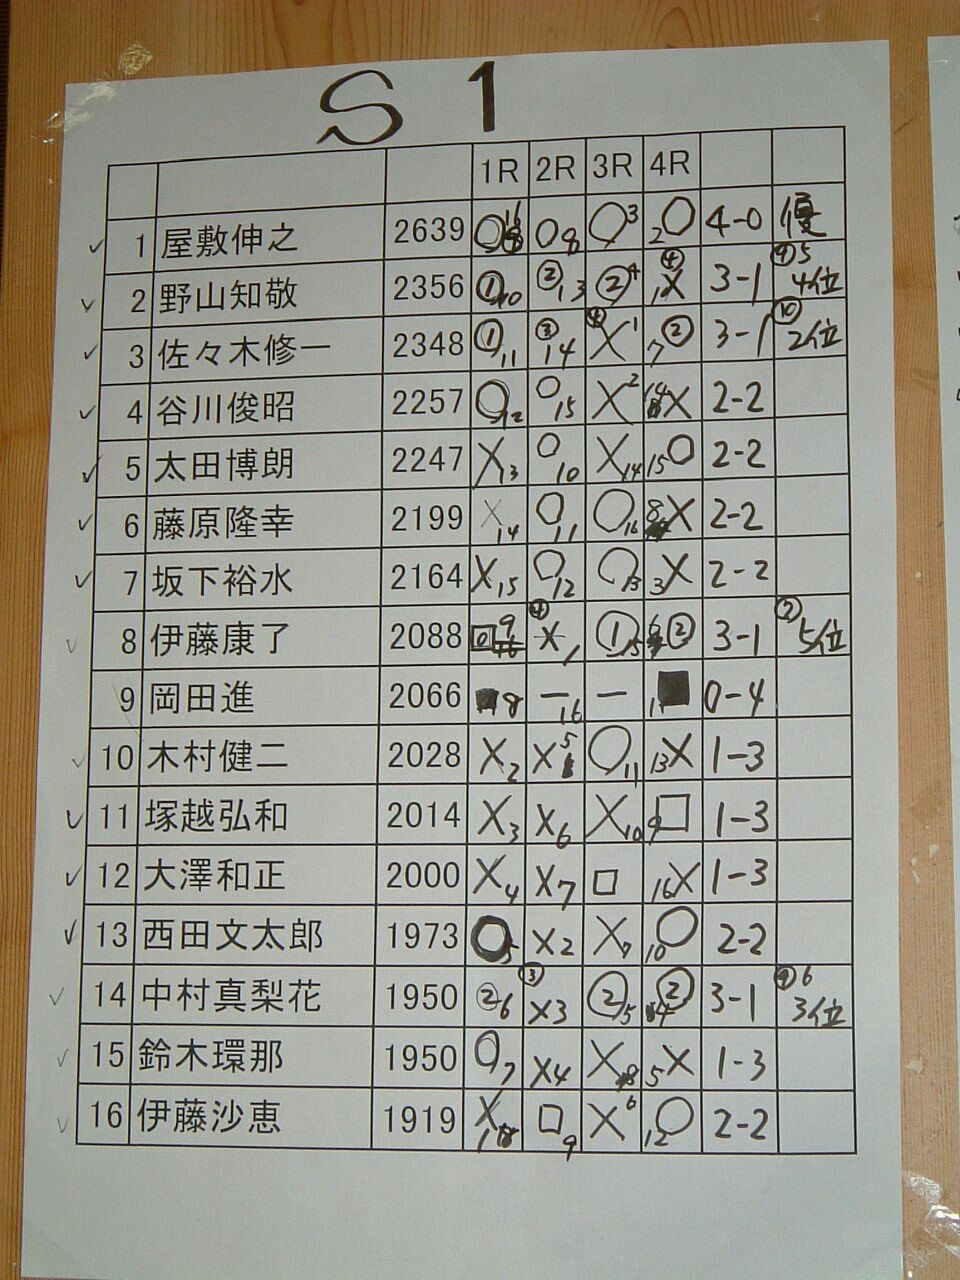 S1
1R 2R 3R 4R
1 屋敷伸之 2639 ○16 ○8 ○3 2○ 4-0 優
2 野山知敬 2356 ①10 ②13 ②4 ④1X 3-1 ④5 4位
3 佐々木修一 2348 ①11 ③14 ④X1 7② 3-1 ⑩ 2位
4 谷川俊昭 2257 ○12 ○15 X2 14X 2-2
5 太田博朗 2247 X13 ○10 X14 15○ 2-2
6 藤原隆幸 2199 X14 ○11 ○16 8X 2-2
7 坂下裕水 2164 X15 ○12 ○13 3X 2-2
8 伊藤康了 2088 □9 ④X1 ①15 6② 3-1 ⑦ 5位
9 岡田進 2066 ■8 -16 - 11■ 0-4
10 木村健二 2028 X2 X5 ○11 13X 1-3
11 塚越弘和 2014 X3 X6 X10 9□ 1-3
12 大澤和正 2000 X4 X7 □ 16X 1-3
13 西田文太郎 1973 ○5 X2 X7 10○ 2-2
14 中村真梨花 1950 ②6 ③X3 ②5 4② 3-1 ④6 3位
15 鈴木環那 1950 ○7 X4 X8 5X 1-3
16 伊藤沙恵 1919 X1 □9 X6 12○ 2-2